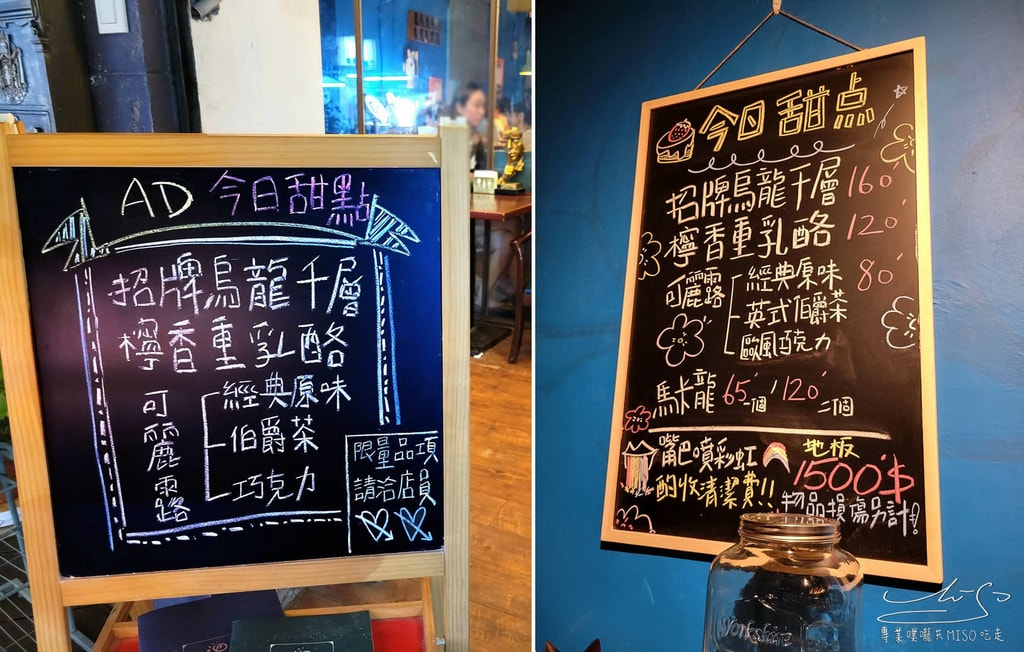 AD 今日甜點
招牌烏龍千層
檸香重乳酪
可麗露
經典原味
伯爵茶
巧克力
限量品項
請洽店員
今日甜点
招牌烏龍千層 160
檸香重乳酪 120
可麗露 經典原味 80
英式伯爵茶
歐風巧克力
馬卡龍 65一個 / 120二個
嘴巴噴彩虹 地板
酌收清潔費!! 1500$
物品損傷另計!
Yorkshire
MISO
專業噗嚨共MISO吃走